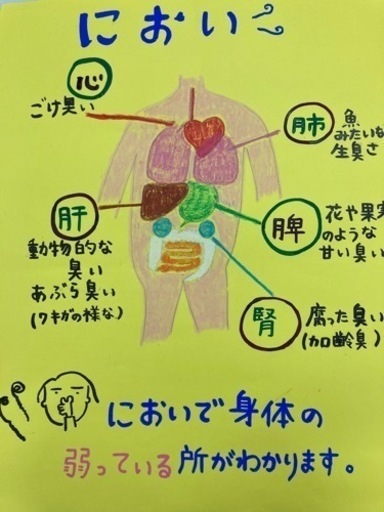 におい
心
ごけ臭い
肺
魚
みたいな
生臭さ
肝
動物的な
臭い
あぶら臭い
(ワキガの様な)
脾
花や果実
のような
甘い臭い
腎
腐った臭い
(加齢臭)
においで身体の
弱っている所がわかります。